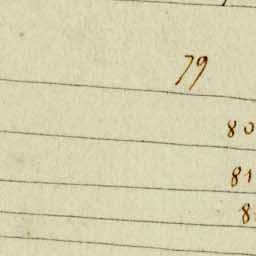 79
80
81
8